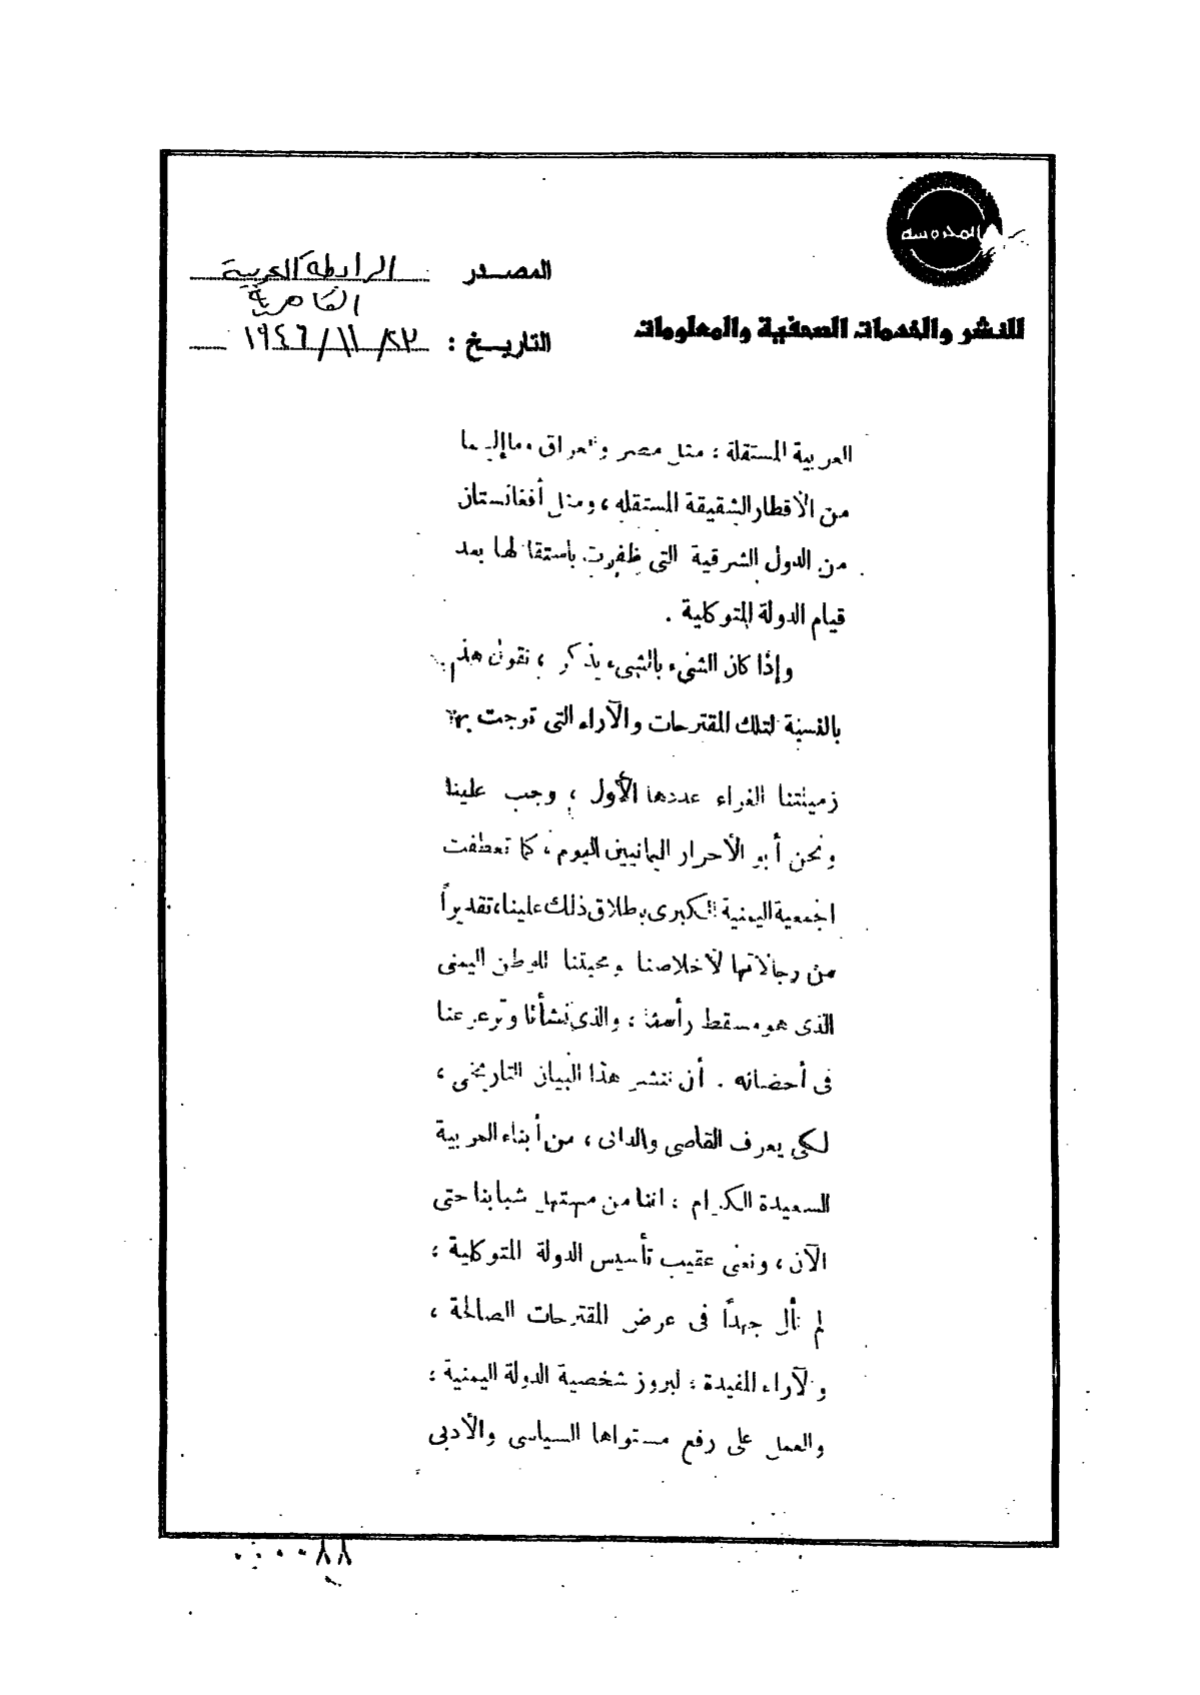 المحروسة
للنشر والخدمات الصحفية والمعلومات
المصدر : الرابطة العربية
القاهرية
التاريخ : ٢٣/١١/١٩٤٦
العربية المستقلة : مثل مصر والعراق وما إليهما
من الأقطار الشقيقة المستقلة ، ومثل أفغانستان
من الدول الشرقية التى ظفرت باستقلالها بعد
قيام الدولة المتوكلية .
وإذا كان الشىء بالشىء يذكر ، نقول هذه
بالنسبة لتلك المقترحات والآراء التى توجت بها
زميلتنا الغراء عددها الأول ، وجب علينا
ونحن أبو الأحرار اليمانيين اليوم ، كما تعطفت
الجمعية اليمنية الكبرى بإطلاق ذلك علينا ، تقديراً
من رجالاتها لأخلاصنا ومحبتنا للوطن اليمنى
الذى هو مسقط رأسنا ، والذى نشأنا وترعرعنا
فى أحضانه . أن ننشر هذا البيان التاريخى ،
لكى يعرف القاصى والدانى ، من أبناء العربية
السعيدة الكرام ، اننا من مستهل شبابنا حتى
الآن ، ونعنى عقيب تأسيس الدولة المتوكلية ،
لم نأل جهداً فى عرض المقترحات الصالحة ،
والآراء المفيدة ، لبروز شخصية الدولة اليمنية ،
والعمل على رفع مستواها السياسى والأدبى